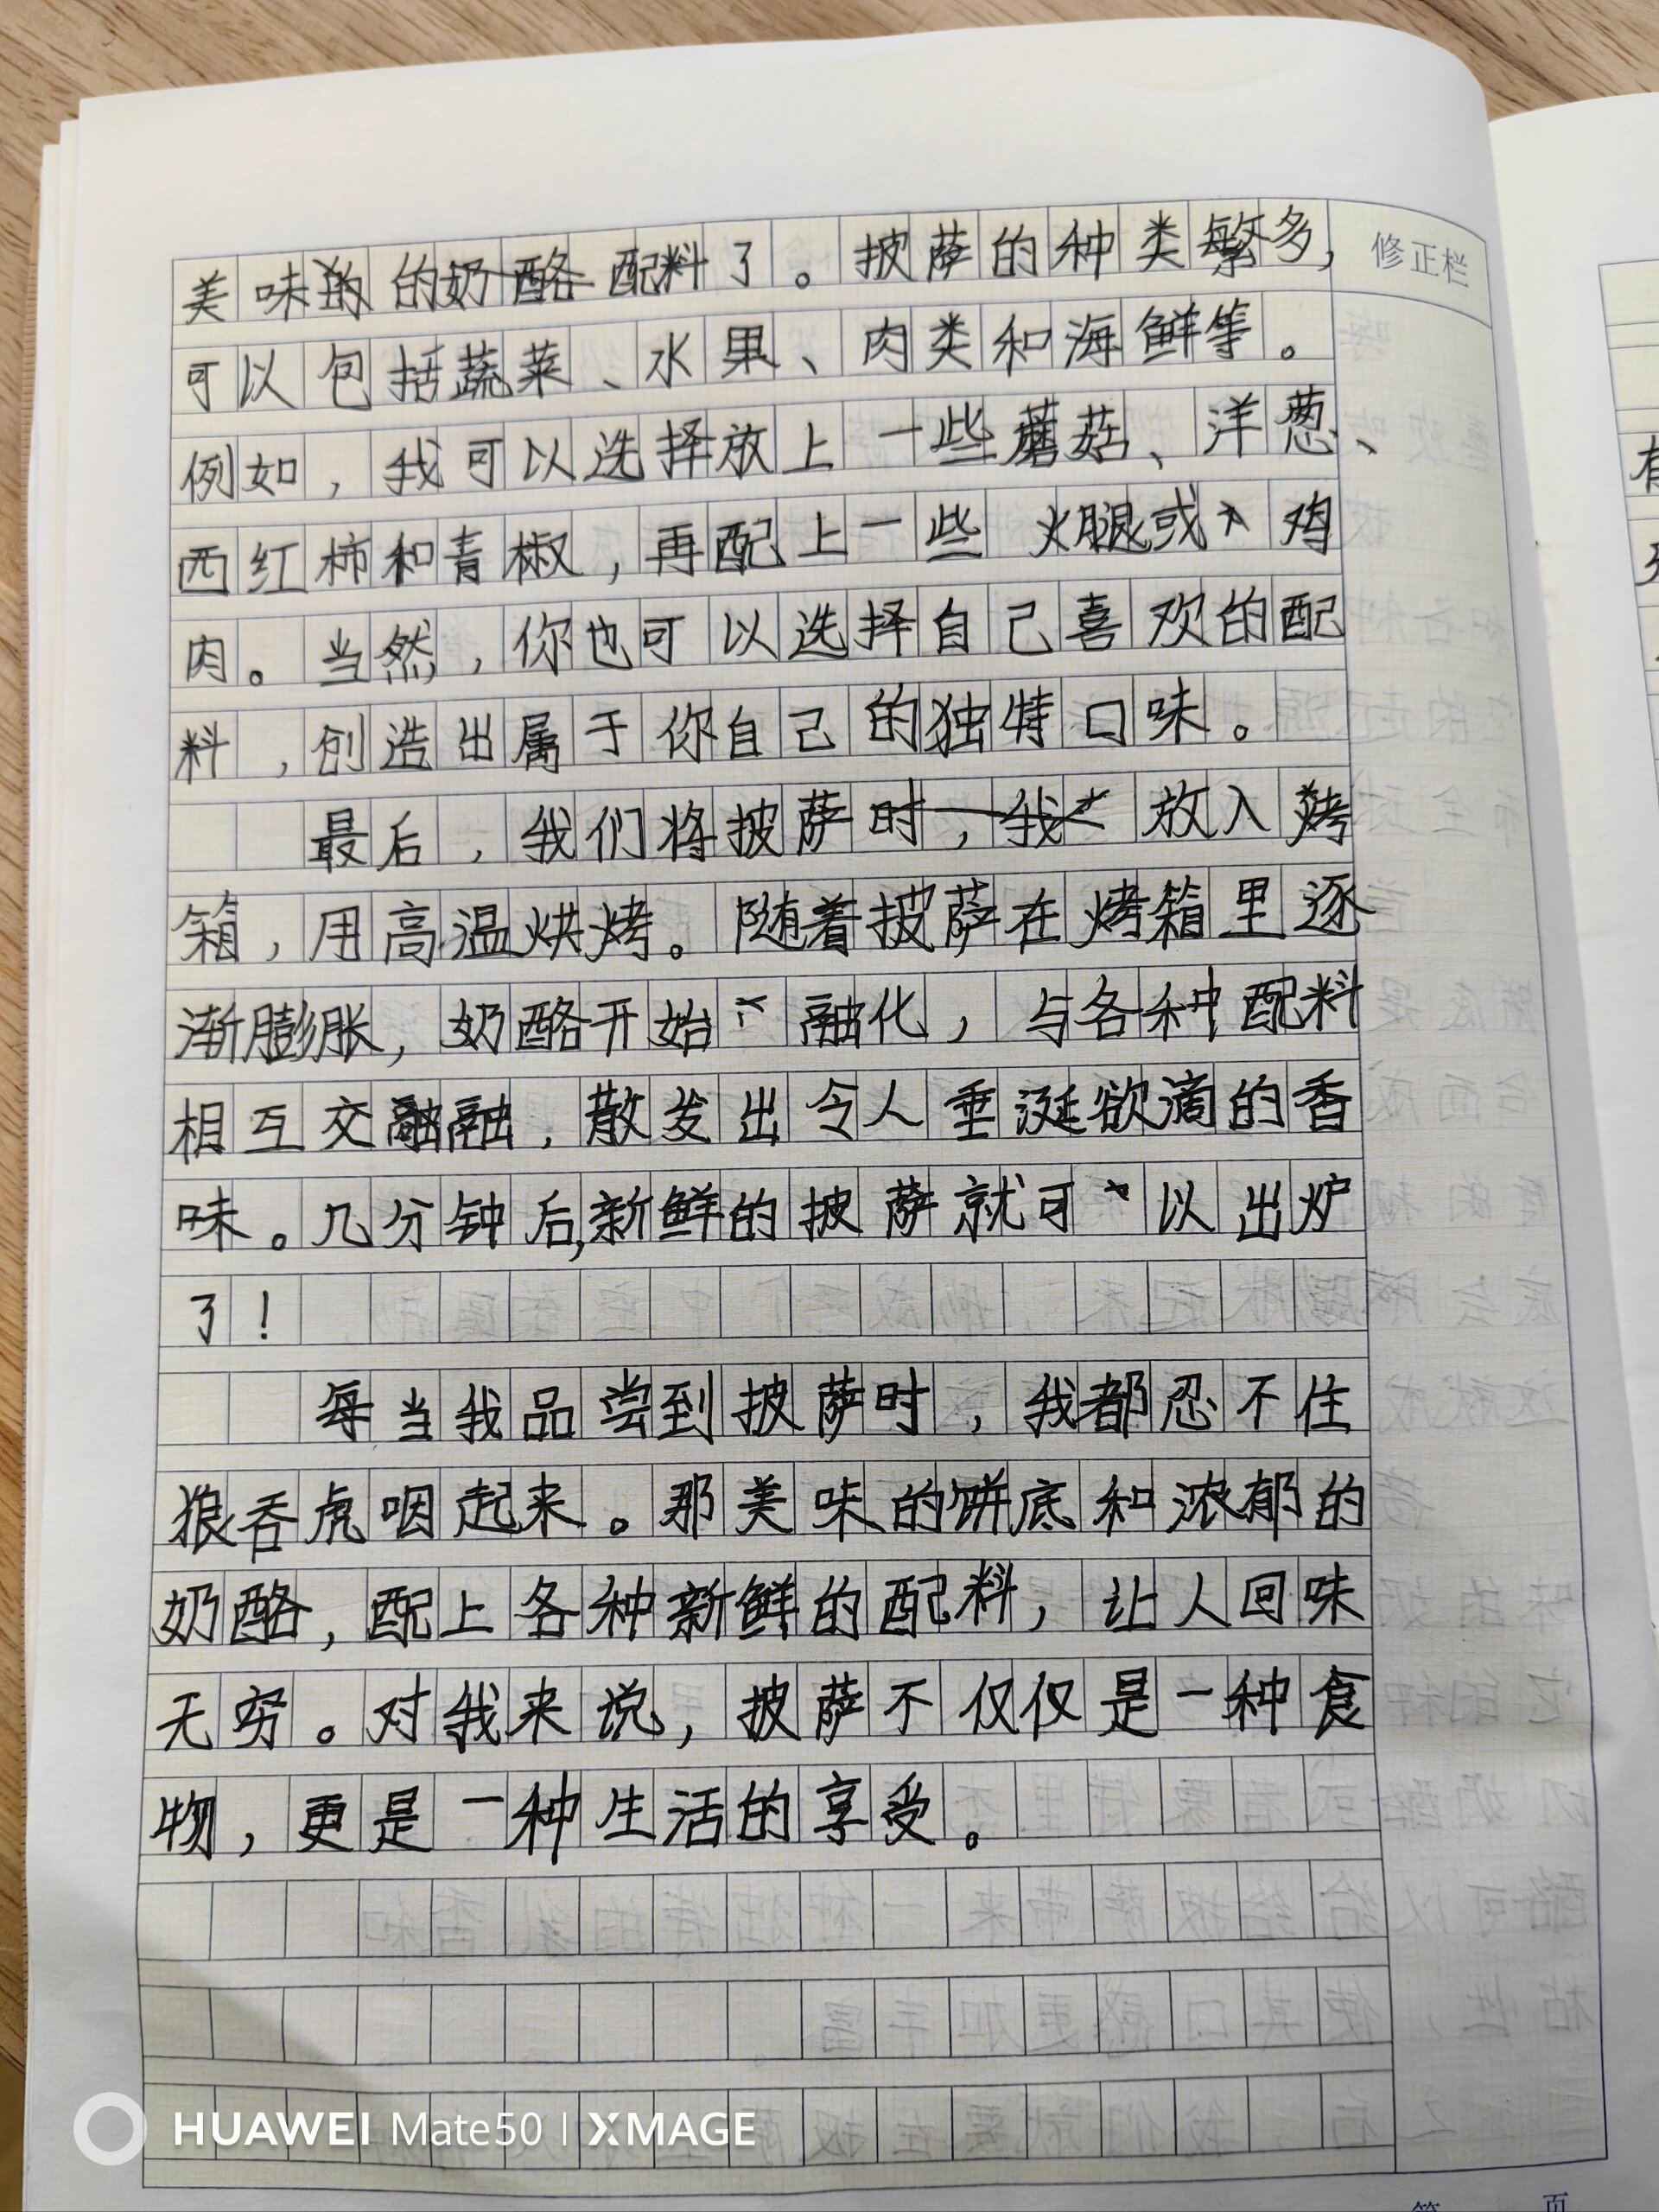 美味的的奶酪配料了。披萨的种类繁多,
修正栏
可以包括蔬菜、水果、肉类和海鲜等。
例如，我可以选择放上一些蘑菇、洋葱、
西红柿和青椒，再配上一些火腿或鸡
肉。当然，你也可以选择自己喜欢的配
料，创造出属于你自己的独特口味。
最后，我们将披萨时，我放入烤
箱，用高温烘烤。随着披萨在烤箱里逐
渐膨胀，奶酪开始融化，与各种配料
相互交融融，散发出令人垂涎欲滴的香
味。几分钟后,新鲜的披萨就可以出炉
了！
每当我品尝到披萨时，我都忍不住
狼吞虎咽起来。那美味的饼底和浓郁的
奶酪，配上各种新鲜的配料，让人回味
无穷。对我来说，披萨不仅仅是一种食
物，更是一种生活的享受。
HUAWEI Mate50 | XMAGE